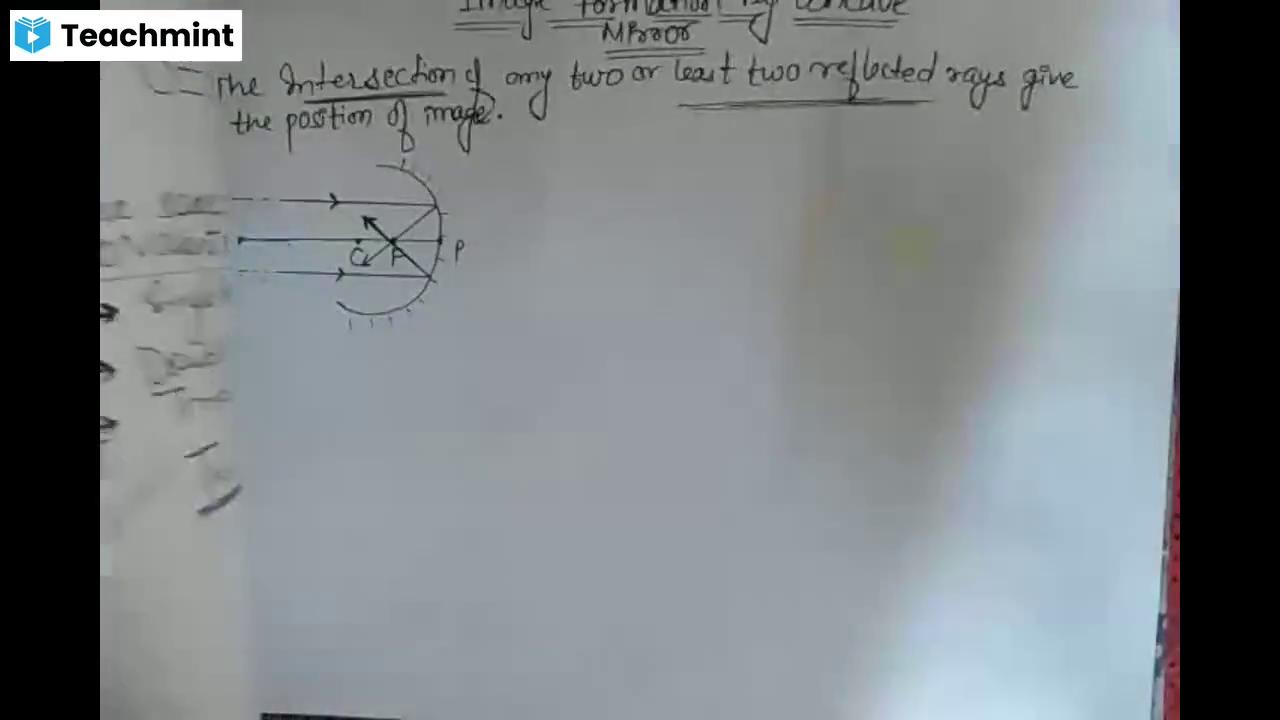 Teachmint
Image formation by concave
Mirror
The Intersection of any two or least two reflected rays give
the position of image.
C F P